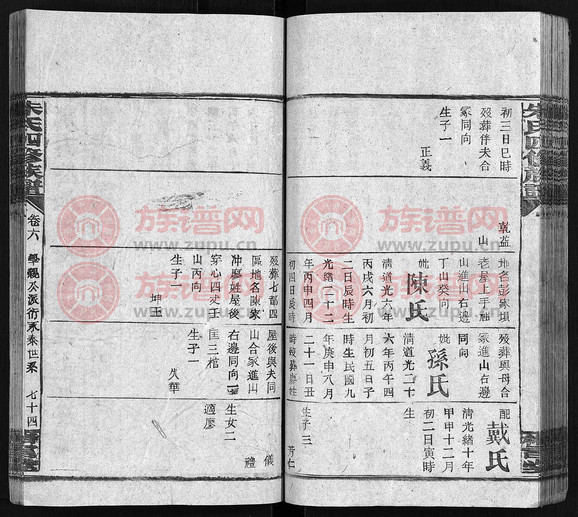 初三日巳時
歿葬伴夫合
冢同向
生子一
正義
乾益
地名彭家塅
老屋上手祖
山進山右邊
丁山癸向
妣
陳氏
清道光六年
丙戌六月初
二日辰時生
光緒二十二
年丙申四月
初四日辰時
歿葬與母合
冢進山右邊
同向
妣
孫氏
清道光二十
六年丙午四
月初五日子
時生民國九
年庚申八月
二十一日丑
配
戴氏
清光緒十年
甲申十二月
初二日寅時
生子三
歿葬七都四
區地名陳家
冲廖姓屋後
穿心四丈壬
山丙向
生子一
坤玉
屋後與夫同
山合冢進山
右邊同向
生子一
生女二
適廖
儀
禮
朱氏四修族譜
卷六
七十四
族谱网
www.zupu.cn
族谱网
www.zupu.cn
族谱网
www.zupu.cn
族谱网
www.zupu.cn